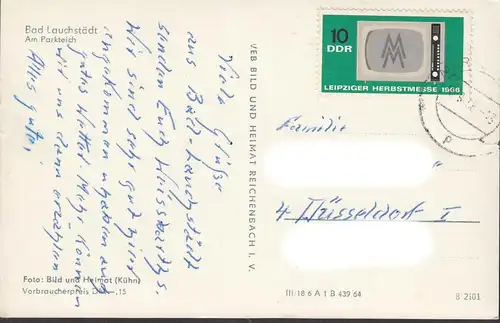 Bad Lauchstädt
Am Parkteich
Viele Grüße
aus Bad-Lauchstädt
senden Euch
Wir sind sehr gut hier
angekommen u. haben auch
gutes Wetter. Mehr können
wir uns dann erzählen
Alles gute!
Foto: Bild und Heimat (Kühn)
Verbraucherpreis DM —,15
VEB BILD UND HEIMAT REICHENBACH I. V.
10
DDR
MM
LEIPZIGER HERBSTMESSE 1966
Familie
4 Düsseldorf I
III/18 6 A 1 B 439 64
B 2101